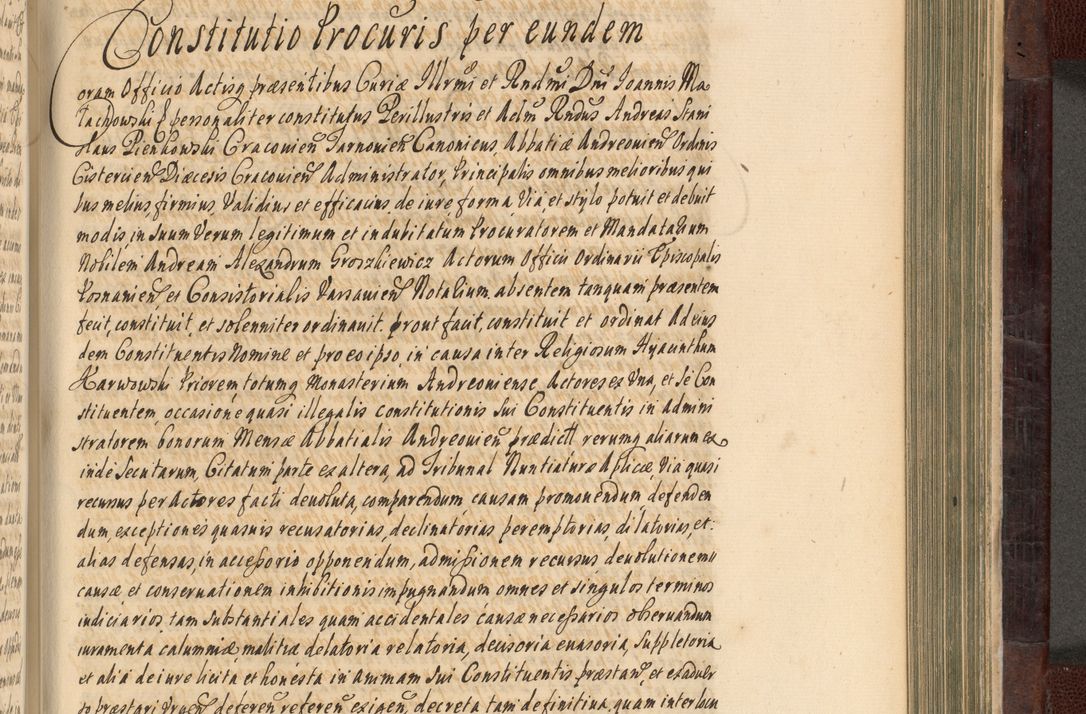 Constitutio Procuris per eundem
Coram Officio Actisq præsentibus Curiæ Illrmi et Rndmi Dni Joannis Ma
łachowski p personaliter constitutus Perillustris et Adm Rndus Andreas Stani
slaus Pienkowski Cracovien Tarnovien Canonicus, Abbatiæ Andreovien Ordinis
Cistercien Diæcesis Cracovien Administrator, Principalis omnibus melioribus qui
bus melius, firmius, Validius et efficacius, de iure, forma, Via, et stylo potuit et debuit
modis, in suum Verum legitimum et indubitatum Procuratorem et Mandatarium
Nobilem Andream Alexandrum Groszkiewicz Actorum Officii Ordinarii Episcopalis
Posnanien et Consistorialis Varsavien Notarium absentem tanquam præsentem
fecit, constituit, et solenniter ordinavit, prout facit, constituit et ordinat Ad eius
dem Constituentis Nomine et pro eo ipso, in causa inter Religiosum Hyacinthum
Karwowski Priorem totumq Monasterium Andreoviense, Actores ex Una, et se Con
stituentem, occasione quasi illegalis constitutionis Sui Constituentis in Admini
stratorem bonorum Mensæ Abbatialis Andreovien prædictt rerumq aliarum ex
inde Secutarum, Citatum parte ex altera, ad Tribunal Nuntiaturæ Aplicæ, Via quasi
recursus per Actores facti devoluta, comparendum, causam promovendum, defenden
dum, exceptiones quasvis recusatorias, declinatorias peremptorias, dilatorias, et
alias defensas, in accessorio opponendum, admissionem recursus, devolutionem
causæ et conservationem inhibitionis impugnandum omnes et singulos terminos
iudiciarios, tam Substantiales quam accidentales causæ necessarios observandum
iuramenta calumniæ malitiæ delatoria relatoria, decisoria evasoria, Suppletoria
et alia de iure licita et honesta in animam Sui Constituentis præstan, et ex adver
so præstari Urgen deferen referen exigen, decreta tam definitiva, quam interlocu